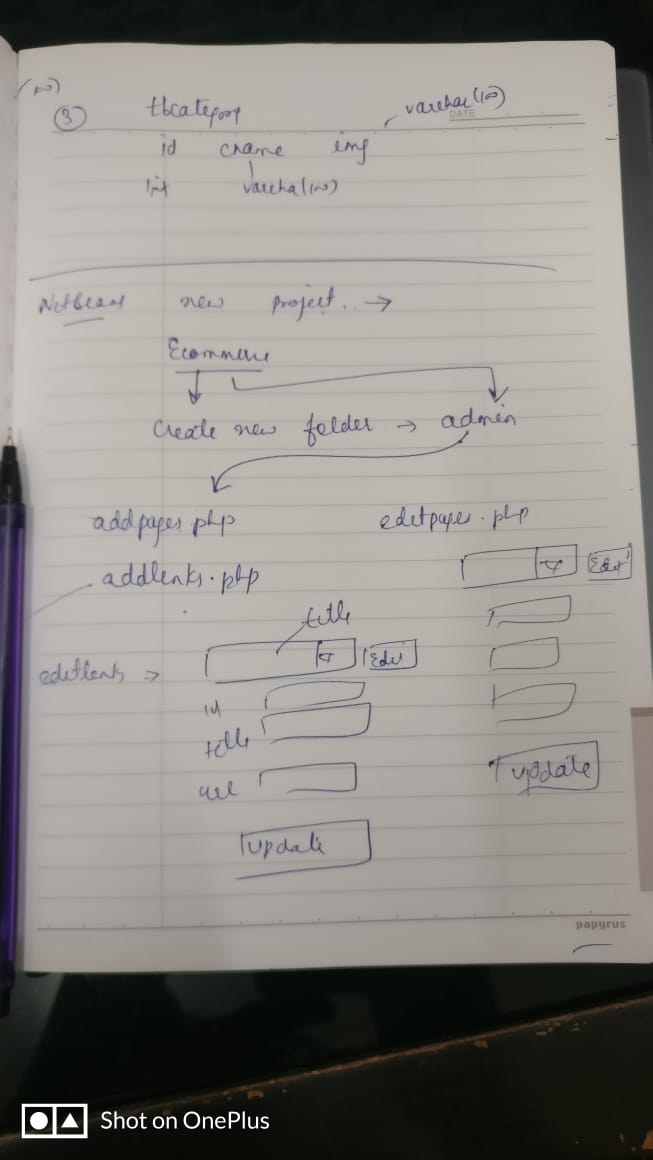 (100)
③ tbcategory varchar(100)
DATE
id cname img
int varchar(100)
NetBeans new project.. →
Ecommerce
Create new folder → admin
addpages.php editpages.php
addlinks.php Edit
title
editlinks → Edit
id
title
url update
update
papyrus
Shot on OnePlus